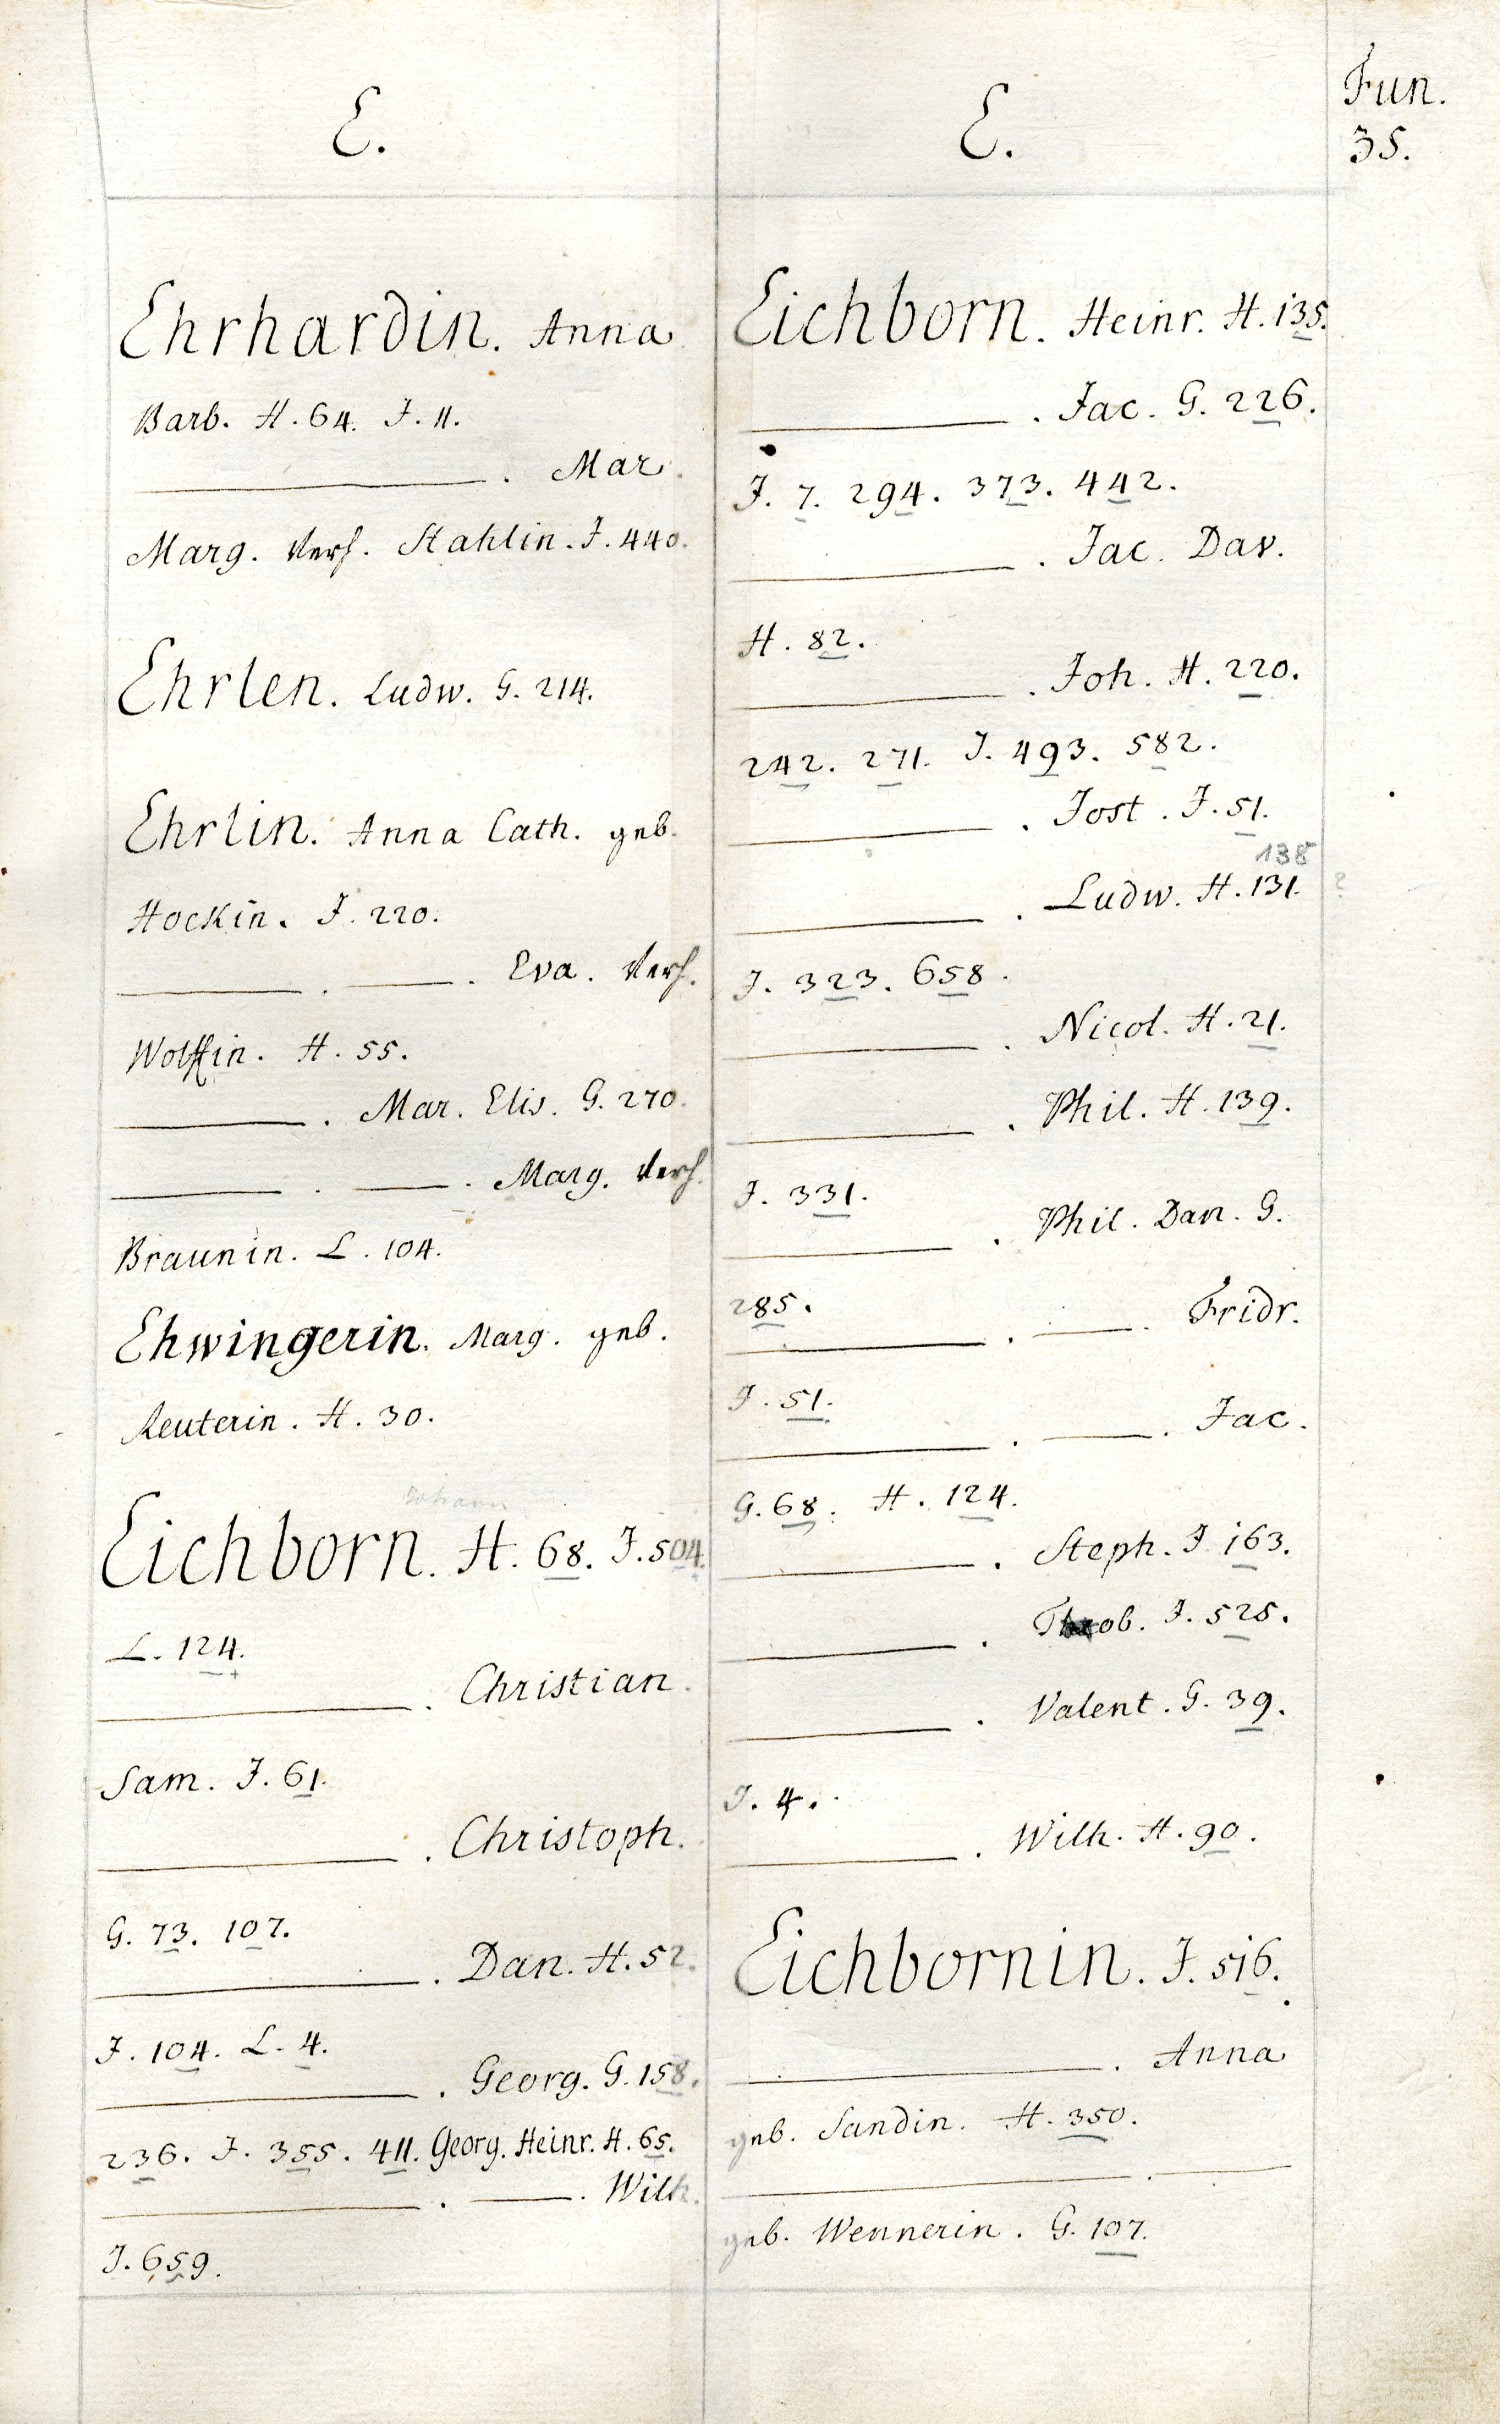 Fun.
35.
E.
Ehrhardin. Anna
Barb. H. 64. J. 11.
———. Mar.
Marg. verh. Stahlin. J. 440.
Ehrlen. Ludw. G. 214.
Ehrlin. Anna Cath. geb.
Hockin. J. 220.
———. ———. Eva. verh.
Wolffin. H. 55.
———. Mar. Elis. G. 270.
———. ———. Marg. verh.
Braunin. L. 104.
Ehwingerin. Marg. geb.
Reuterin. H. 30.
Johann
Eichborn. H. 68. J. 504.
L. 124.
———. Christian.
Sam. J. 61.
———. Christoph.
G. 73. 107.
———. Dan. H. 52.
J. 104. L. 4.
———. Georg. G. 158.
236. J. 355. 411. Georg. Heinr. H. 65.
———. ———. Wilh.
J. 659.
E.
Eichborn. Heinr. H. 135.
———. Jac. G. 226.
J. 7. 294. 373. 442.
———. Jac. Dav.
H. 82.
———. Joh. H. 220.
242. 271. J. 493. 582.
———. Jost. J. 51.
138
———. Ludw. H. 131. ?
J. 323. 658.
———. Nicol. H. 21.
———. Phil. H. 139.
J. 331.
———. Phil. Dan. G.
285.
———. ———. Fridr.
J. 51.
———. ———. Jac.
G. 68. H. 124.
———. Steph. J 163.
———. J. 525.
———. Valent. G. 39.
J. 4.
———. Wilh. H. 90.
Eichbornin. J. 516.
———. Anna
geb. Sandin. H. 350.
———. ———
geb. Wennerin. G. 107.